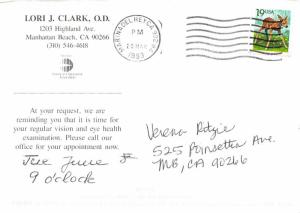 LORI J. CLARK, O.D.
1203 Highland Ave.
Manhattan Beach, CA 90266
(310) 546-4618
MARINA DEL REY CA 902
PM
20 MAY
1993
19 USA
At your request, we are
reminding you that it is time for
your regular vision and eye health
examination. Please call our
office for your appointment now.
June
9 o'clock
Verena
525 Poinsettia Ave.
MB, CA 90266